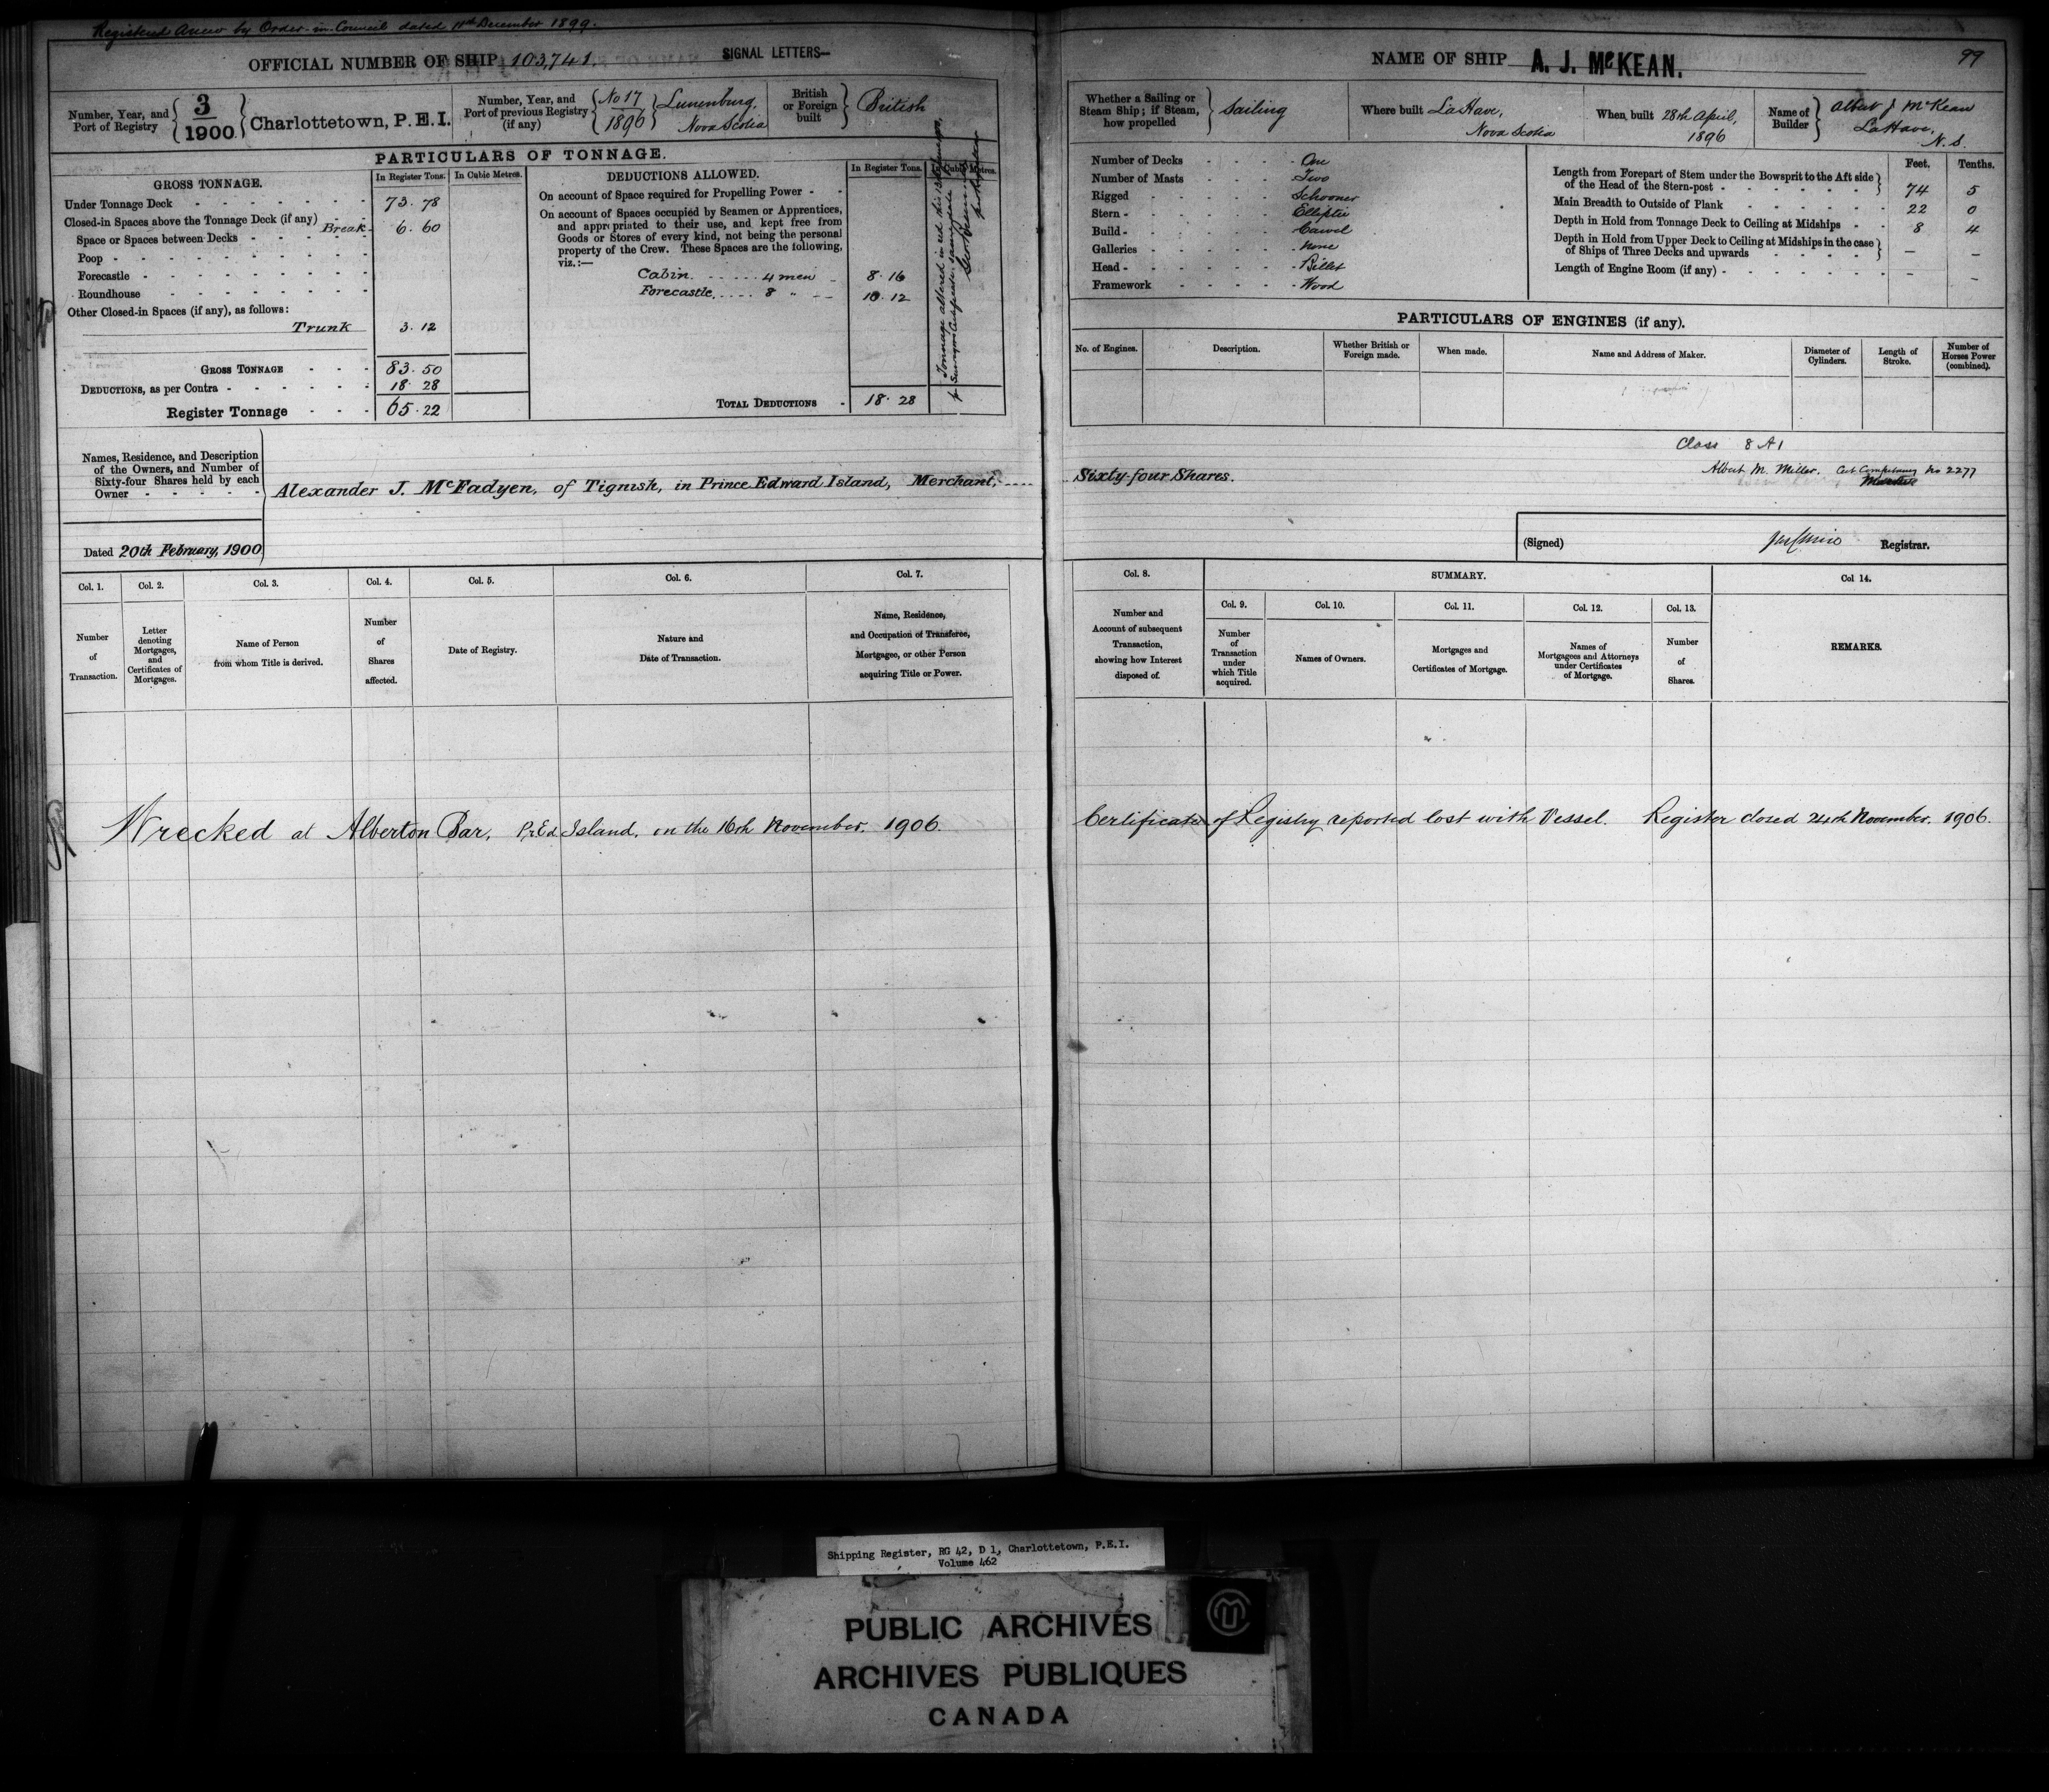 Registered Anew by Order-in-Council dated 11th December 1899.
OFFICIAL NUMBER OF SHIP 103,741. SIGNAL LETTERS—
Number, Year, and Port of Registry 3 / 1900 Charlottetown, P.E.I.
Number, Year, and Port of previous Registry (if any) No 17 / 1896 Lunenburg, Nova Scotia
British or Foreign built British
PARTICULARS OF TONNAGE.
GROSS TONNAGE. In Register Tons. In Cubic Metres.
Under Tonnage Deck 73.78
Closed-in Spaces above the Tonnage Deck (if any)
Space or Spaces between Decks Break 6.60
Poop
Forecastle
Roundhouse
Other Closed-in Spaces (if any), as follows:
Trunk 3.12
GROSS TONNAGE 83.50
DEDUCTIONS, as per Contra 18.28
Register Tonnage 65.22
DEDUCTIONS ALLOWED. In Register Tons. In Cubic Metres.
On account of Space required for Propelling Power
On account of Spaces occupied by Seamen or Apprentices,
and appropriated to their use, and kept free from
Goods or Stores of every kind, not being the personal
property of the Crew. These Spaces are the following,
viz.:—
Cabin 4 men 8.16
Forecastle 8 " 10.12
TOTAL DEDUCTIONS 18.28
Tonnage altered in red this
Names, Residence, and Description
of the Owners, and Number of
Sixty-four Shares held by each
Owner
Alexander J. McFadyen, of Tignish, in Prince Edward Island, Merchant,
Dated 20th February, 1900
Col. 1. Col. 2. Col. 3. Col. 4. Col. 5. Col. 6. Col. 7.
Number of Transaction.
Letter denoting Mortgages, and Certificates of Mortgages.
Name of Person from whom Title is derived.
Number of Shares affected.
Date of Registry.
Nature and Date of Transaction.
Name, Residence, and Occupation of Transferee, Mortgagee, or other Person acquiring Title or Power.
Wrecked at Alberton Bar, Pr. Ed. Island, on the 16th November. 1906.
NAME OF SHIP A. J. McKEAN. 99
Whether a Sailing or Steam Ship; if Steam, how propelled Sailing
Where built LaHave, Nova Scotia
When built 28th April, 1896
Name of Builder Albert J McKean LaHave, N.S.
Number of Decks One
Number of Masts Two
Rigged Schooner
Stern Elliptic
Build Carvel
Galleries None
Head Billet
Framework Wood
Feet. Tenths.
Length from Forepart of Stem under the Bowsprit to the Aft side
of the Head of the Stern-post 74 5
Main Breadth to Outside of Plank 22 0
Depth in Hold from Tonnage Deck to Ceiling at Midships 8 4
Depth in Hold from Upper Deck to Ceiling at Midships in the case
of Ships of Three Decks and upwards — —
Length of Engine Room (if any) — —
PARTICULARS OF ENGINES (if any).
No. of Engines. Description. Whether British or Foreign made. When made. Name and Address of Maker. Diameter of Cylinders. Length of Stroke. Number of Horses Power (combined).
Class 8 A1
Albert M. Miller. Cert Competency No 2277
Sixty-four Shares.
(Signed) Registrar.
Col. 8. SUMMARY. Col 14.
Col. 9. Col. 10. Col. 11. Col. 12. Col. 13.
Number and Account of subsequent Transaction, showing how Interest disposed of.
Number of Transaction under which Title acquired.
Names of Owners.
Mortgages and Certificates of Mortgage.
Names of Mortgagees and Attorneys under Certificates of Mortgage.
Number of Shares.
REMARKS.
Certificate of Registry reported lost with Vessel. Register closed 24th November. 1906.
Shipping Register, RG 42, D 1, Charlottetown, P.E.I.
Volume 462
PUBLIC ARCHIVES
ARCHIVES PUBLIQUES
CANADA